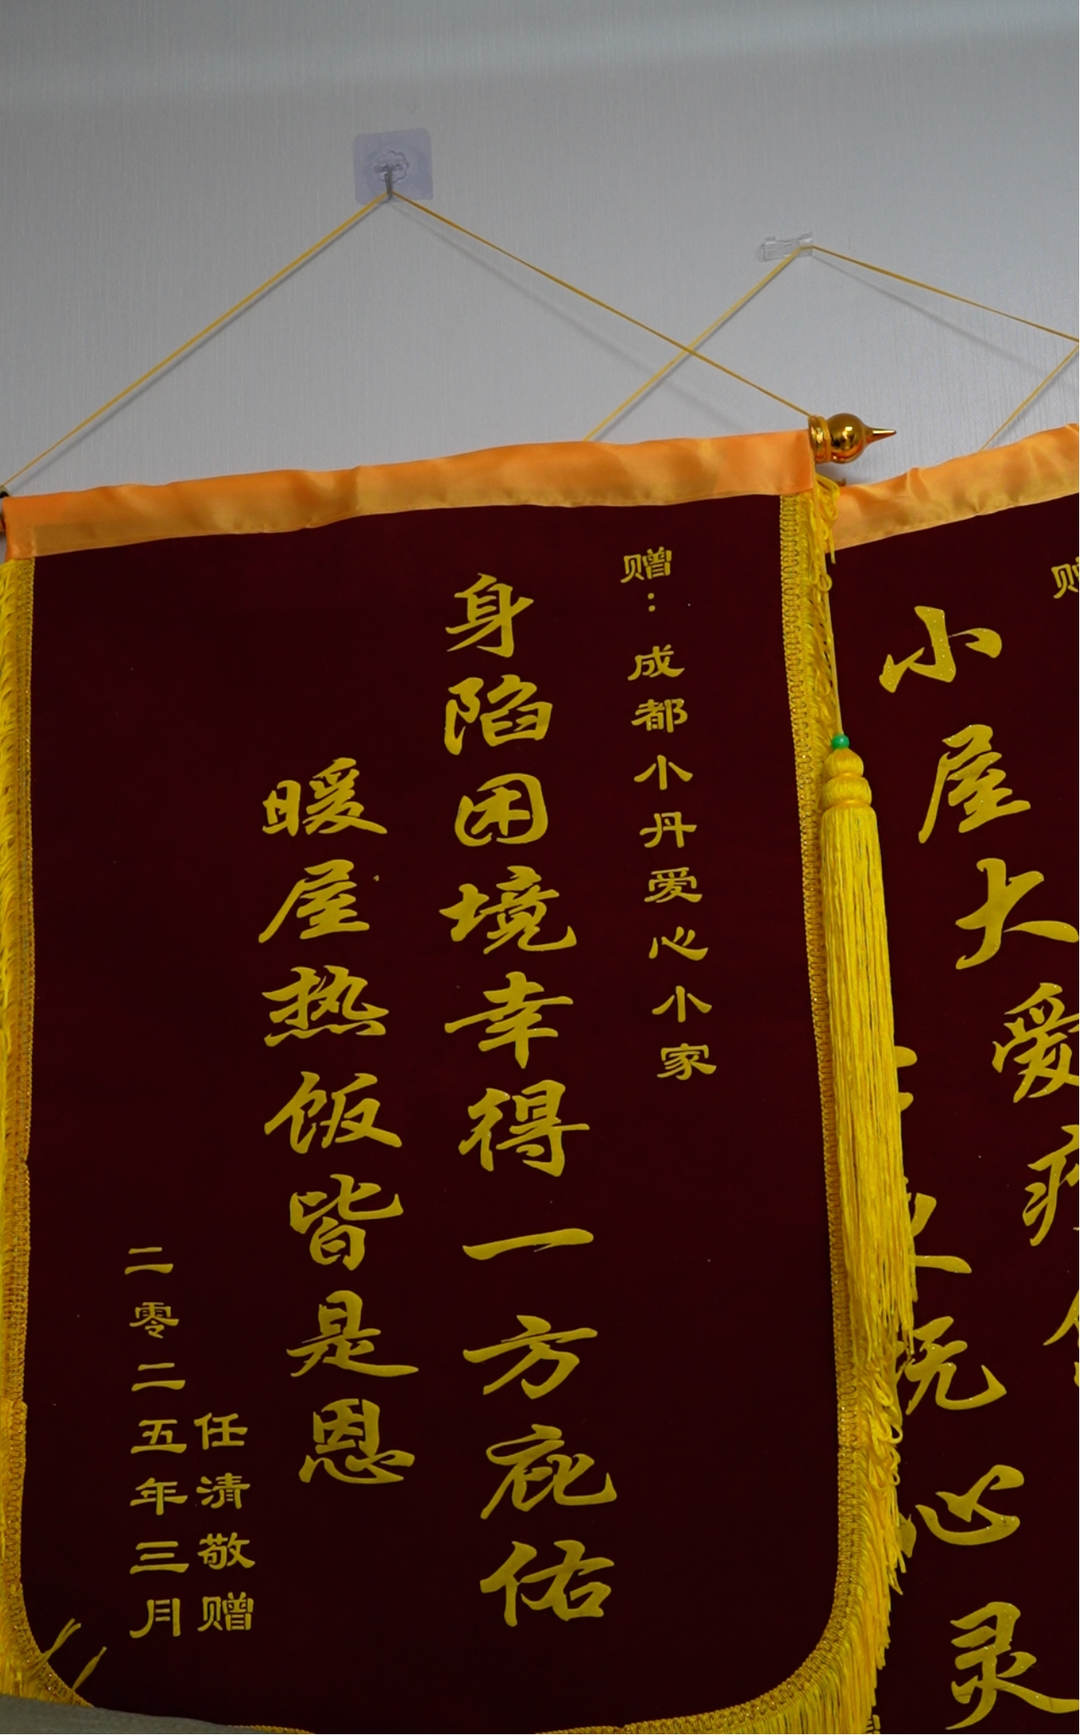 赠：成都小丹爱心小家
身陷困境幸得一方庇佑
暖屋热饭皆是恩
任清敬赠
二零二五年三月
赠
小屋大爱
抚心灵